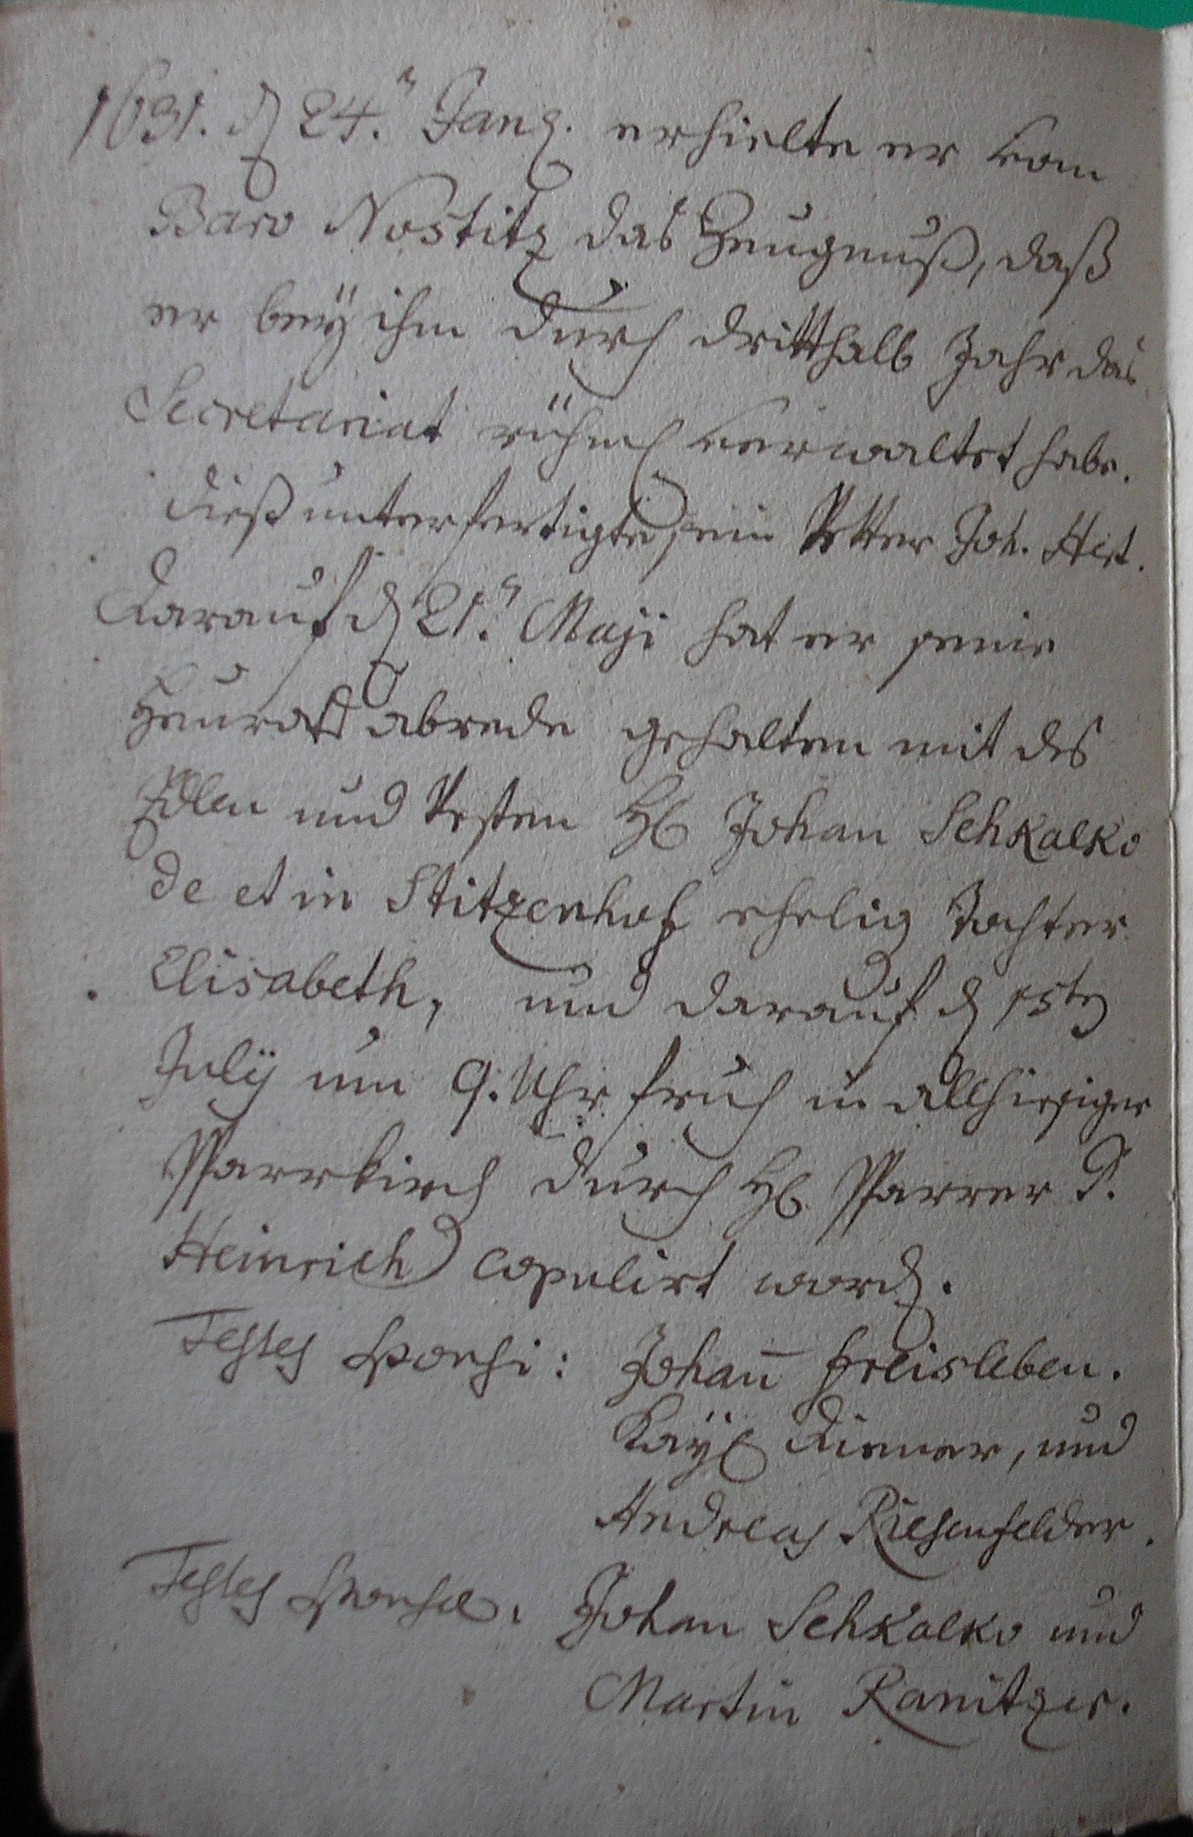 1631. d 24.n Janr. erhielte er vom
Baro Nostitz das Zeugnuß, daß
er beÿ ihm durch dritthalb Jahr das
Secretariat rühml verwaltet habe.
dieß unterfertigte sein Vetter Joh. Hiet.
darauf d 21.n Maji hat er seine
Heuraths abrede gehalten mit des
Edlen und Vesten H Johan Schkalko
de et in Stitzenhof ehelig Tochter
Elisabeth, und darauf d 15ten
Julÿ um 9. Uhr fruh in allhiesiger
Pfarrkirch durch H Pfarrer D.
Heinrich copulirt word.
Testes sponsi: Johann freisleben.
Kaÿl diener, und
Andreas Riesenfelder.
Testes sponsæ. Johan Schkalko und
Martin Ranitzer.